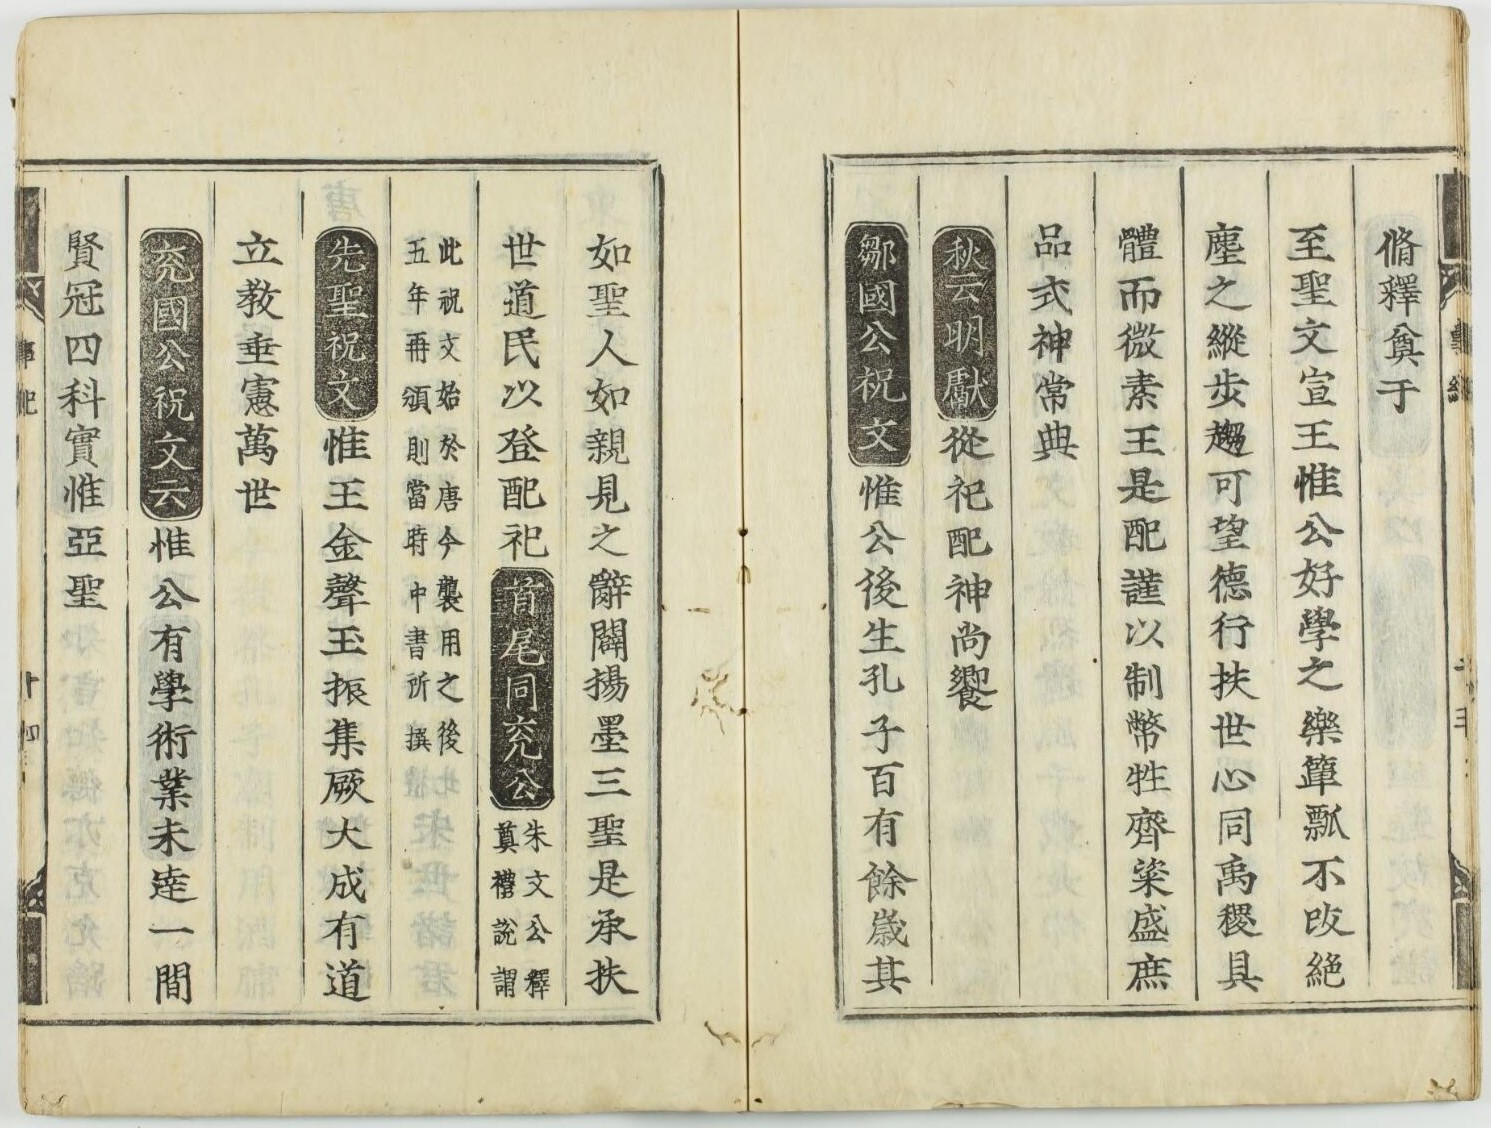 脩釋奠于
至聖文宣王惟公好學之樂簞瓢不改絶
塵之縱步趨可望德行扶世心同禹稷具
體而微素王是配謹以制幣牲齊粢盛庶
品式神常典
秋云明獻從祀配神尚饗
鄒國公祝文惟公後生孔子百有餘歲其
如聖人如親見之辭闢揚墨三聖是承扶
世道民以登配祀首尾同兖公朱文公釋
奠禮說謂
此祝文始於唐今襲用之後
五年再頒則當時中書所撰
先聖祝文惟王金聲玉振集厥大成有道
立教垂憲萬世
兖國公祝文云惟公有學術業未達一間
賢冠四科實惟亞聖
十四